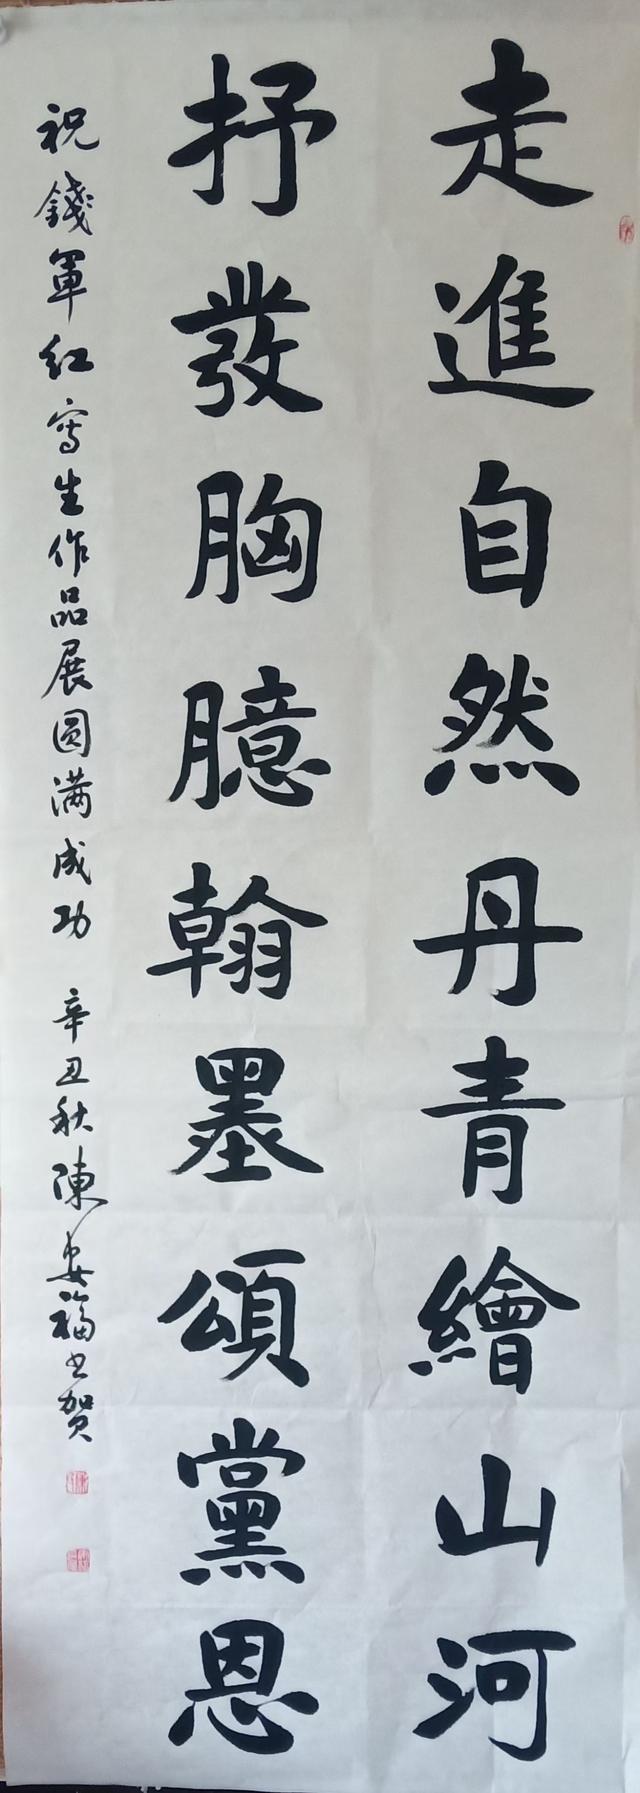 走進自然丹青繪山河
抒發胸臆翰墨頌黨恩
祝錢軍紅写生作品展圆满成功 辛丑秋陳安福书贺